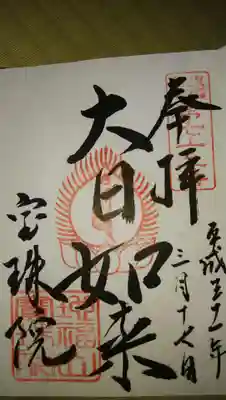 奉拝
平成三十一年
三月十七日
大日如来
宝珠院